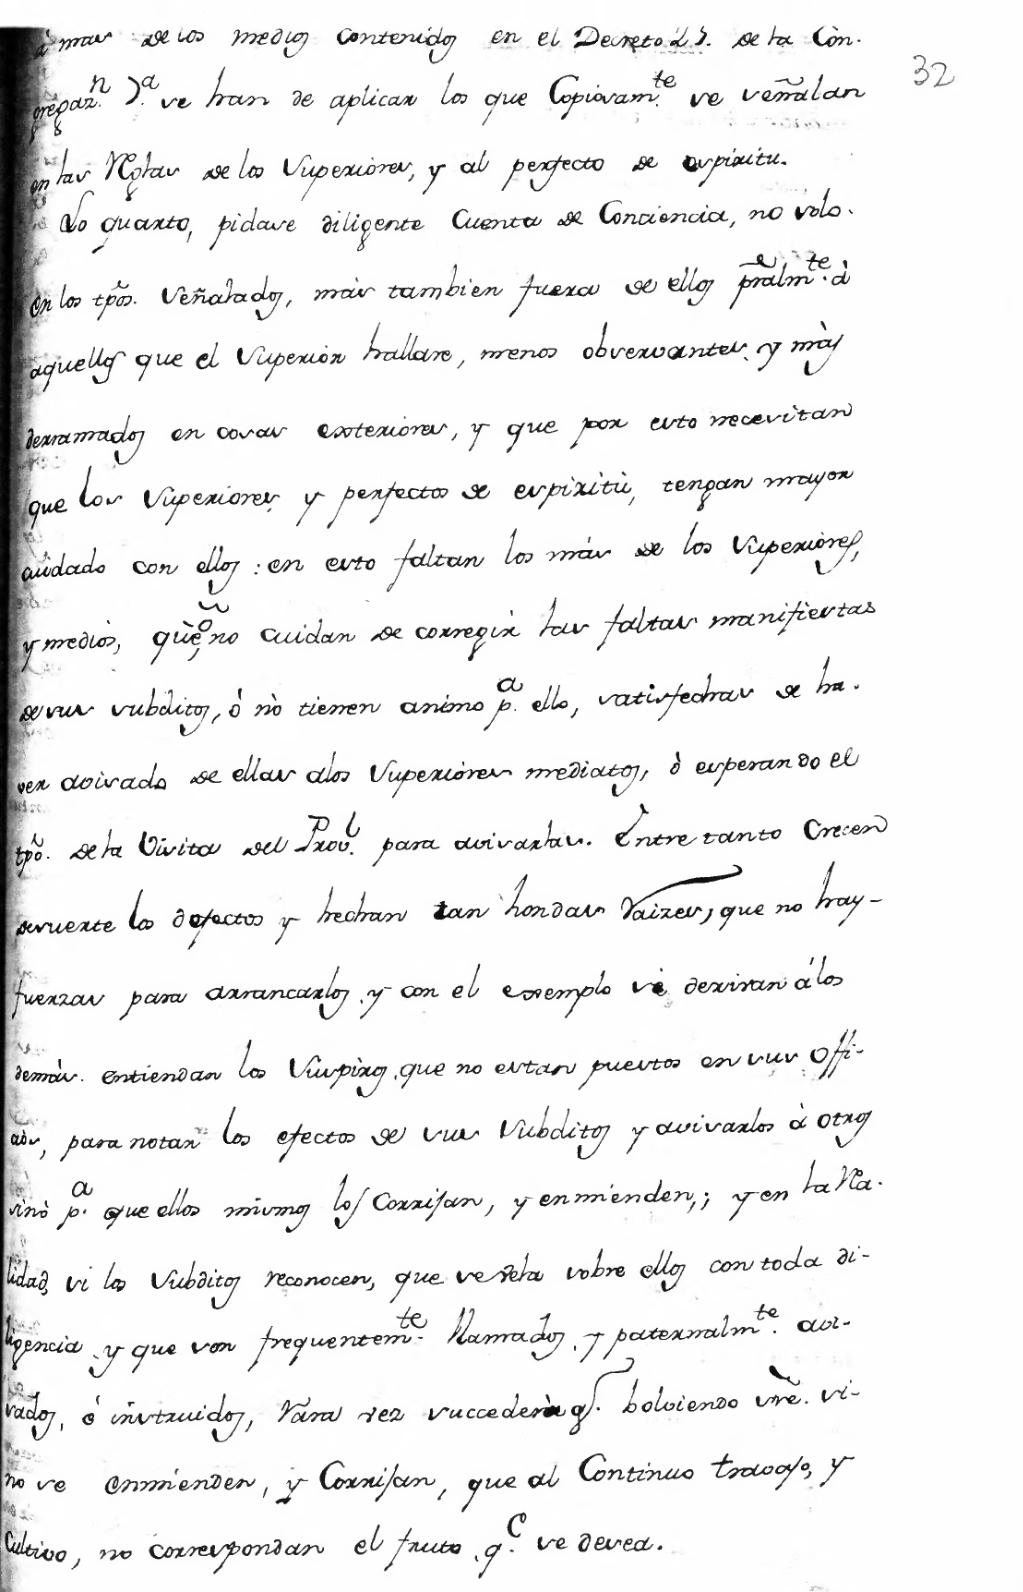 à mas de los medios contenidos en el Decreto 25. de la Con-
gregaz.n 7.a se han de aplicar los que Copiosam.te se señalan
en las Reglas de los Superiores, y al perfecto de espiritu.
Lo quarto, pidase diligente Cuenta de Conciencia, no solo.
en los tpõs. señalados, màs tambien fuera de ellos prãlm.te à
aquellos que el Superior hallare, menos observantes, y màs
derramados en cosas exteriores, y que por esto necesitan
que los Superiores y perfectos de espiritù, tengan mayor
cuidado con ellos: en esto faltan los màs de los Superiores,
y medios, què, no cuidan de corregir las faltas manifiestas
de sus subditos, ò nò tienen animo p.a ello, satisfechas de ha-
ver avisado de ellas a los Superiores mediatos, ò esperando el
tpõ. de la Visita del Prov.l para avisarlas. Entre tanto Crecen
desuerte los defectos y hechan tan hondas Raizes, que no hay-
fuerzas para arrancarlos, y con el exemplo se derivan à los
demàs. entiendan los Supiros, que no estan puestos en sus Offi-
cios, para notar los efectos de sus Subditos y avisarlos à otros
sinò p.a que ellos mismos los Corrijan, y enmienden,; y en la Rea-
lidad, si los Subditos reconocen, que se vela sobre ellos con toda di-
ligencia, y que son frequentem.te llamados, y paternalm.te avi-
sados, è instruidos, Rara vez succederà q.e bolviendo sre. si-
no se enmienden, y Corrijan, que al Continuo travajo, y
Cultivo, no correspondan el fruto, q.e se desea.
32